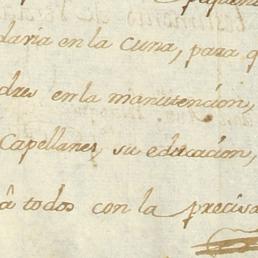 daria en la cuna, para q
dres en la manutencion,
Capellanes, su educacion,
â todos con la precisa